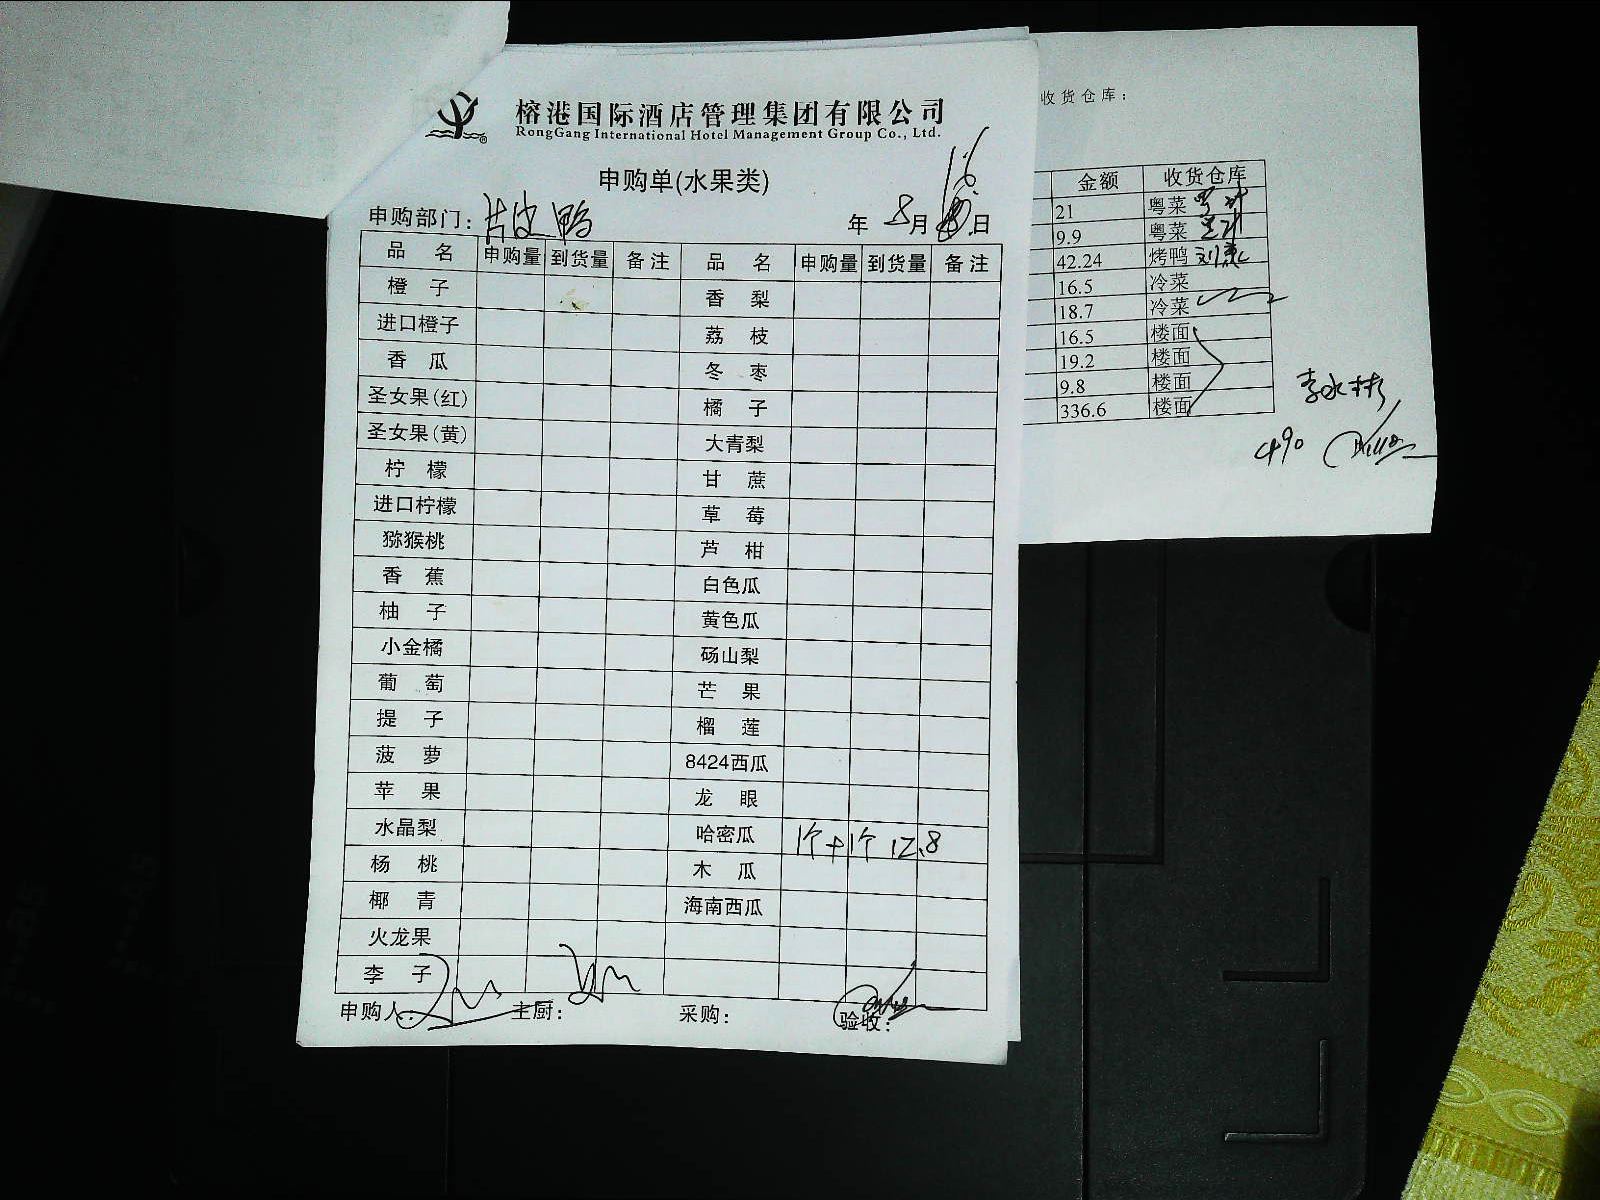 榕港国际酒店管理集团有限公司
RongGang International Hotel Management Group Co., Ltd.
申购单(水果类)
16
申购部门: 年 8月 日
品名 申购量 到货量 备注 品名 申购量 到货量 备注
橙子 香梨
进口橙子 荔枝
香瓜 冬枣
圣女果(红) 橘子
圣女果(黄) 大青梨
柠檬 甘蔗
进口柠檬 草莓
猕猴桃 芦柑
香蕉 白色瓜
柚子 黄色瓜
小金橘 砀山梨
葡萄 芒果
提子 榴莲
菠萝 8424西瓜
苹果 龙眼
水晶梨 哈密瓜 1个+1个 12.8
杨桃 木瓜
椰青 海南西瓜
火龙果
李子
申购人: 主厨: 采购: 验收:
收货仓库:
金额 收货仓库
21 粤菜
9.9 粤菜
42.24 烤鸭
16.5 冷菜
18.7 冷菜
16.5 楼面
19.2 楼面
9.8 楼面
336.6 楼面
490